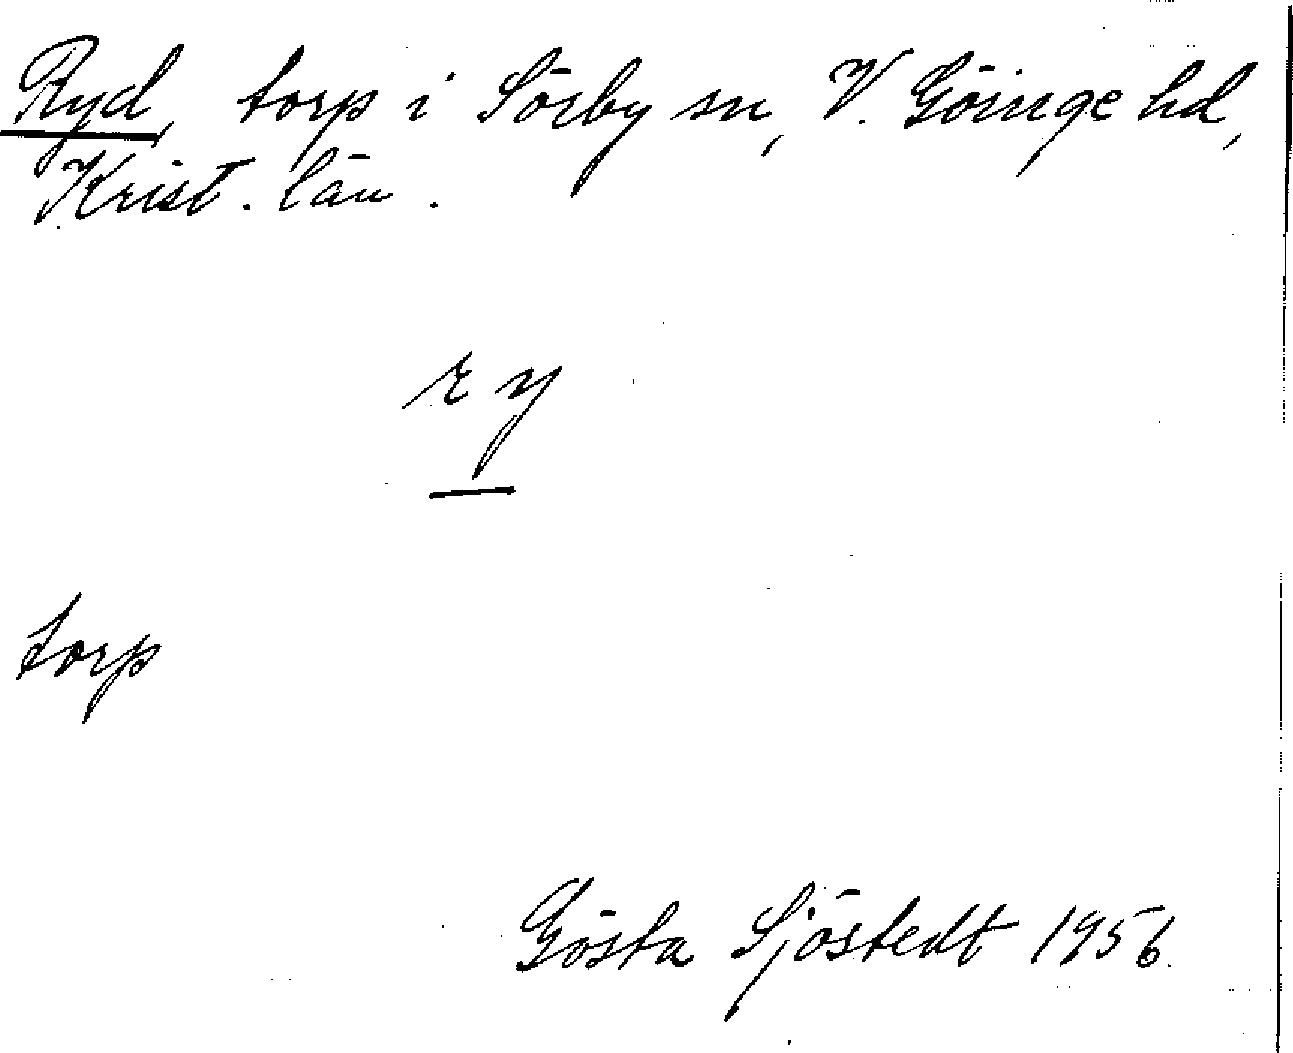 Ryd, torp i Sörby sn, V. Göinge hd,
Krist. län.
ry
torp
Gösta Sjöstedt 1956.